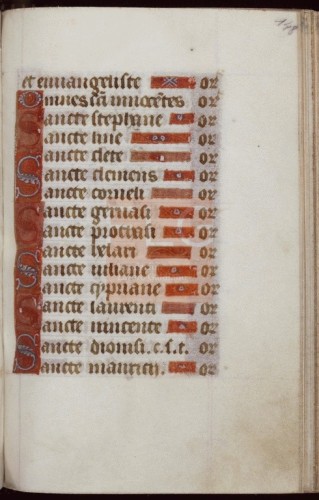 148
et euuangeliste or
Omnes sci innocetes or
Sancte stephane or
Sancte line or
Sancte clete or
Sancte clemens or
Sancte corneli or
Sancte geruasi or
Sancte prothasi or
Sancte helari or
Sancte iuliane or
Sancte cypriane or
Sancte laurenti or
Sancte uincente or
Sancte dionisi.c.s.t. or
Sancte mauricii. or